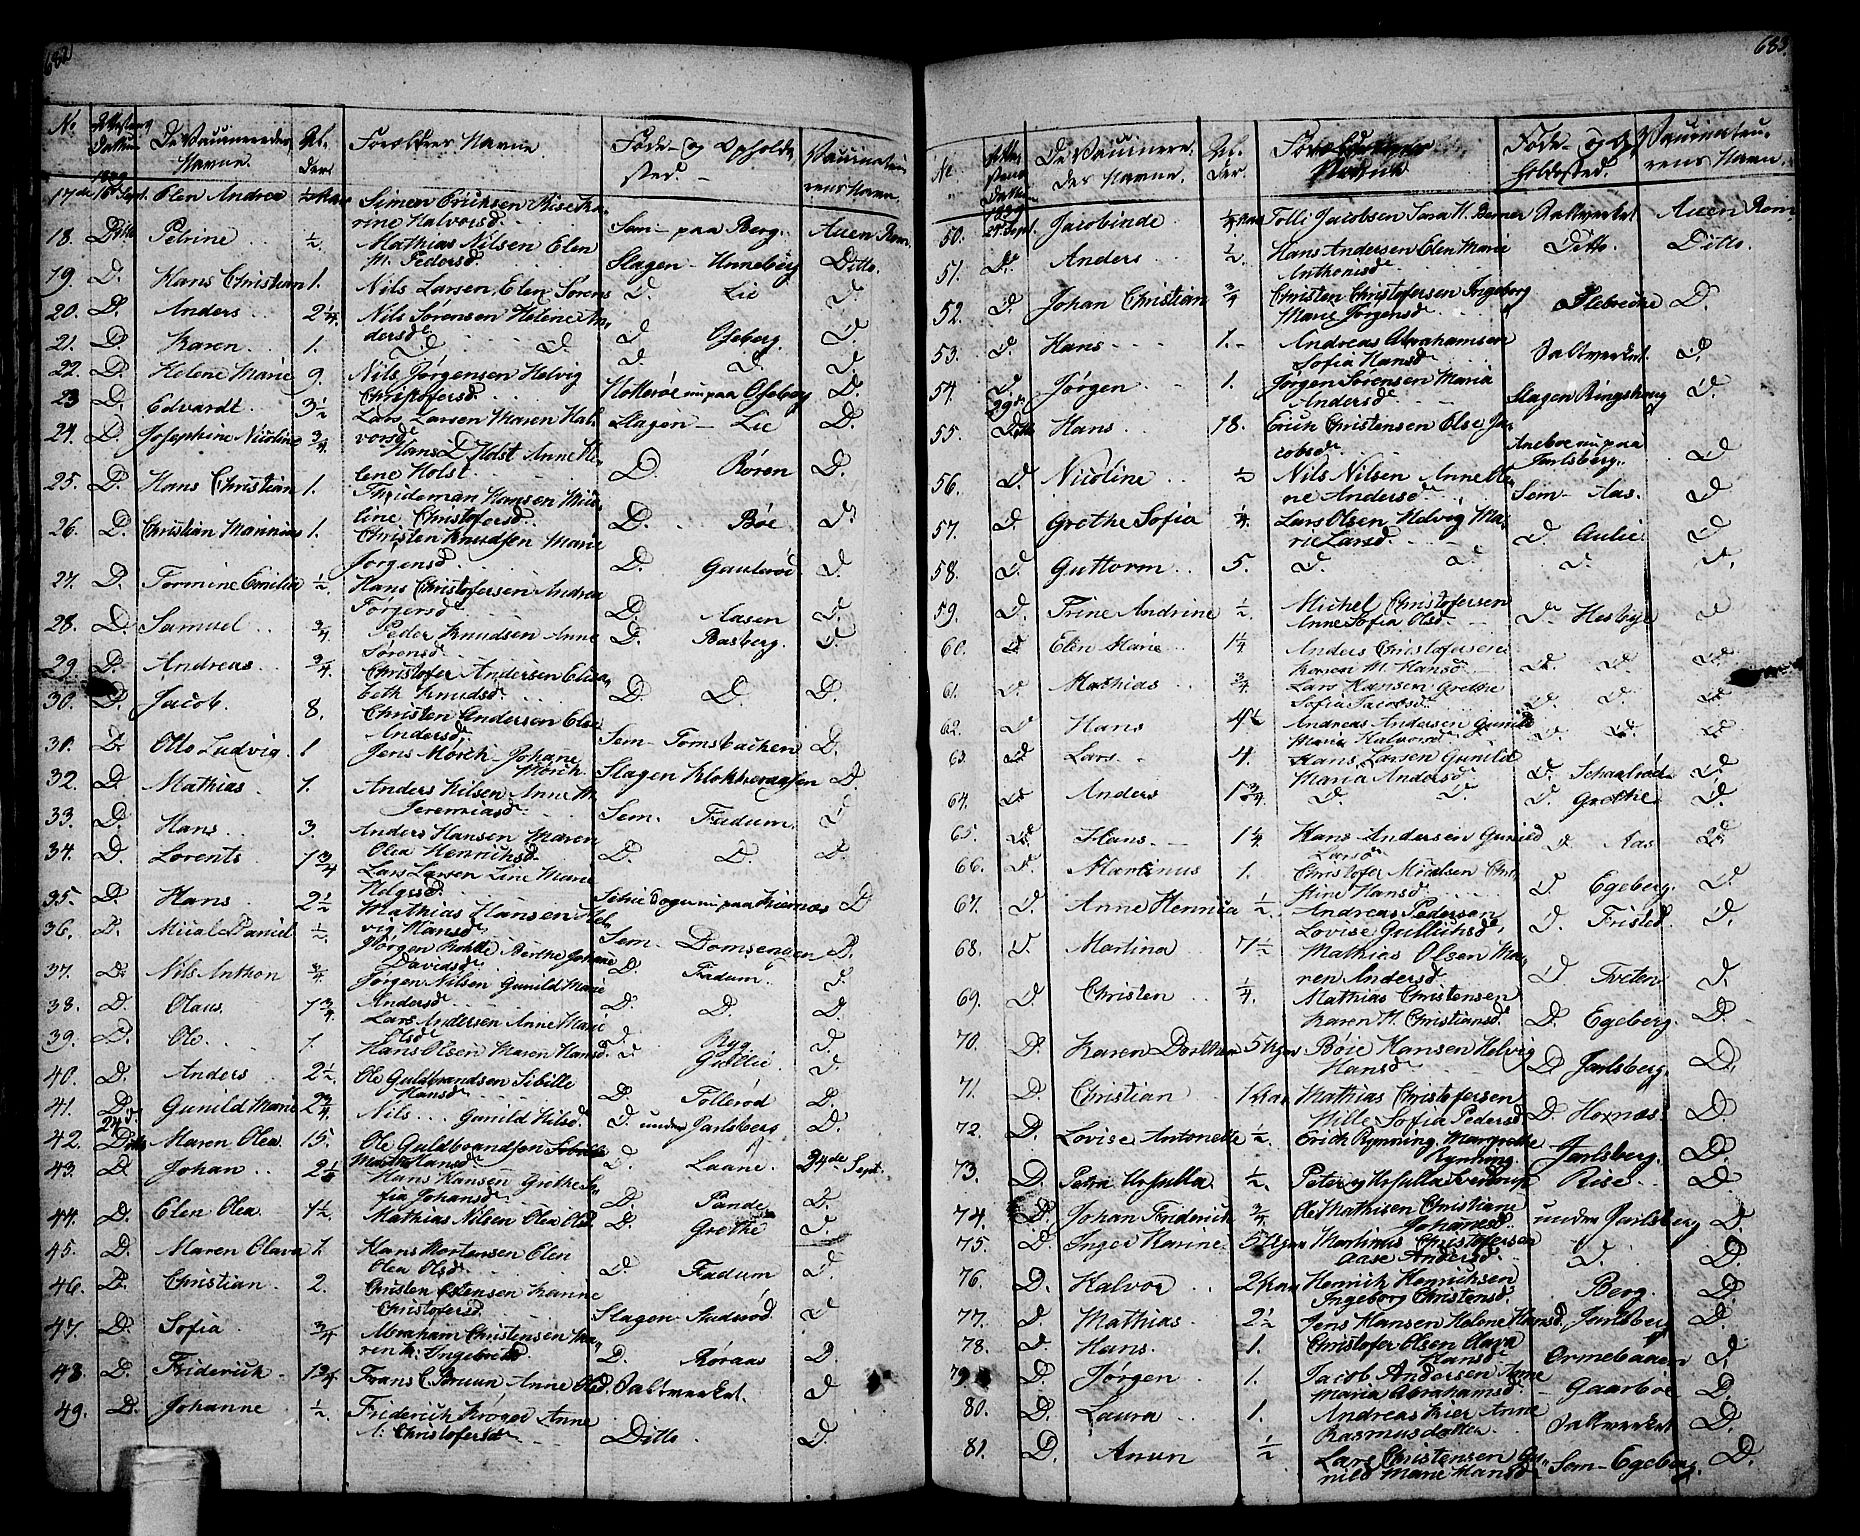 682
No | Attestens Datum | De Vaccineredes Navne. | Alder | Forældres Navne. | Føde- og Opholdssted. | Vaccinateurens Navn.
1839
17de | 16 Sept. | Elen Andrea | ½ Aar | Simen Ericksen Rise Karine Halvorsd. | Sem - paa Berg. | Auen Rom.
18. | Ditto | Petrine | ½. | Mathias Nilsen Elen M. Pedersd. | Slagen - Unneberg | Ditto.
19. | D. | Hans Christian | 1. | Nils Larsen, Elen Sørens | D. Lie | D.
20. | D. | Anders | 2¼. | Nils Sørensen Helene Andersd. | D Oseberg. | D.
21. | D | Karen | 1. | D. D. | D. D. | D.
22. | D | Helene Marie | 9. | Nils Jørgensen Helvig Christofersd. | Notterøe nu paa Oseberg | D.
23 | D. | Edvardt. | 3½ | Lars Larsen Maren Halvorsd. | Slagen - Lie | D.
24. | D. | Josephine Nicoline | ¾. | Hans D. Holst Anne Helene Holst | D. Røren | D.
25. | D. | Hans Christian | 1. | Thideman Hansen Mille­line Christofersd. | D. Bøe | D.
26. | D. | Christian Marinius | 1. | Christen Knudsen Marie Jørgensd. | D. Gaulerød | D.
27. | D. | Tormine Emilia | ½. | Hans Christofersen Andrea Jørgensd. | D. Aasen | D.
28. | D. | Samuel | ¾ | Peder Knudsen Anne Sørensd. | D. Basberg. | D.
29. | D. | Andreas. | ¾. | Christofer Andersen Elisabeth Knudsd. | D. D. | D.
30. | D. | Jacob. | 8. | Christen Andersen Else Andersd. | Sem - Tomsbachen | D.
30. | D. | Otto Ludvig. | 1 | Jens Mørch - Johane Mørch. | Slagen Klokkeragsen | D.
32. | D. | Mathias | 1. | Anders Nilsen Anne M. Jeremiasd. | Sem. Fadum. | D
33. | D. | Hans | 3. | Anders Hansen Maren Olea Henrichsd. | D. D. | D.
34. | D. | Lorents | 1¾ | Lars Larsen Line Marie Helgesd. | | D
35. | D. | Hans | 2½ | Mathias Hansen Helvig Hansd. | Sem. Domsengen | D.
36. | D. | Micael Daniel | ½. | Jørgen Rohlde Berthe Johane Davidsd. | D. Fadum. | D.
37. | D. | Nils Anthon | ¾. | Jørgen Nilsen Gunild Marie Andersd. | D. D. | D.
38. | D. | Olaus | 1¾. | Lars Andersen Anne Marie Olsd. | D. Ryg | D.
39. | D. | Ole | 1. | Hans Olsen Maren Hansd. | D Gullie | D.
40. | D. | Anders | 2½. | Ole Guldbrandsen Sibille Hansd. | D. Tollerød | D.
41. | D. | Gunild Marie | 2¾. | Nils Gunild Nilsd. | D. under Jarlsberg | D.
24de
42. | Ditto | Maren Olea | 15. | Ole Guldbrandsen Marthe Hansd. | D. Laane. | 24de Sept.
43. | D | Johan | 2½ | Hans Hansen Grethe Sofia Johansd. | D. Pande | D.
44. | D. | Elen Olea | 4½. | Mathias Nilsen Olea Olsd. | D. Grethe | D
45. | D. | Maren Olava | 7. | Hans Mortensen Elen Olea Olsd. | D. Fadum | D.
46. | D. | Christian | 2. | Christen Ostensen Hanne Christofersd. | Slagen - | D
47. | D. | Sofia | ¾ | Abraham Christensen Maren K: Ingebretsd. | D. Røraas | D.
48. | D. | Friderich | 1¾. | Frans C Bruun Anne Olsd. | Valtwerket. | D
49. | D. | Johanne | ½. | Friderich Krøger Anne A: Christofersd. | Ditto | D.
683.
No | Attestens Datum | De Vaccineredes Navne. | Alder. | Forældrenes Navne | Føde- og Opholdssted. | Vaccinateurens Navn.
1839
50. | 28 Sept. | Jacobinde | ½ Aar | Tolli Jacobsen Sara H. Berner | Valtwerket | Auen Rom
51. | D. | Anders | ½. | Hans Andersen Elen Marie Anthonisd. | Ditto | Ditto.
52. | D. | Johan Christian | ¾ | Christen Christofersen Ingeborg Marie Jørgensd. | | D.
53. | D. | Hans | 1. | Andreas Abrahamsen Sofia Hansd. | Valtwerket. | D.
54. | D | Jørgen | 1. | Jørgen Sørensen Maria Andersd. | Slagen Ringshoug | D.
29de
55. | Ditto | Hans | 18. | Erich Christensen Else Jacobsd. | nu paa Jarlsberg. | D
56. | D. | Nicoline | ½ | Nils Nilsen Annethene Andersd. | Sem - Aas. | D
57. | D. | Grethe Sofia | ¼. | Lars Olsen Helvig Marie Larsd. | D. Aulie | D
58. | D. | Guttorm | 5. | D. D. | D. | D.
59. | D. | Trine Andrine | ½ | Michel Christofersen Anne Sofia Olsd. | D. Hesbye | D
60. | D | Elen Marie | 1¼ | Anders Christofersen Karen M. Hansd. | D. D. | D.
61. | D | Mathias | ¾. | Lars Hansen Grethe Sofia Jacobsd. | D. D. | D.
62. | D | Hans | 4½ | Andreas Andersen Gunild Maria Halvorsd. | D. D. | D.
63. | D | Lars | 4. | Hans Larsen Gunild Maria Andersd. | D. Schaalrød | D.
64. | D | Anders | 1¾. | D. D. | D. Grethe. | D.
65. | D | Hans | 1¼ | Hans Andersen Gunild Larsd. | D Aas | D
66. | D. | Martinus | 1. | Christofer Micalsen Christine Hansd. | D. Egeberg. | D
67. | D. | Anne Hennica | ½. | Andreas Pedersen Lovise Gullichsd. | D. Fristed. | D.
68. | D. | Martina | 7½ | Mathias Olsen Maren Andersd. | D Treten | D.
69. | D. | Christen | ¼. | Mathias Christensen Karen M. Christiansd. | D. Egeberg. | D.
70. | D. | Karen Dorthea | 5 Uger | Bøie Hansen Helvig Hansd. | D Jarlsberg. | D.
71. | D. | Christian | 1 Aar | Mathias Christofersen Hille Sofia Pedersd | D. Hoxnæs | D
72. | D. | Lovise Antonette | ½. | Erich Rynning. Margrethe Rynning. | Jarlsberg. | D.
73. | D. | Petra Ursulla | ½. | Peter og Ursulla | Rise | D.
74. | D. | Johan Friderich | ¾. | Ole Mathisen Christiane Johannesd. | under Jarlsberg | D.
75. | D. | Inger Karine. | 5 Uger | Martinus Christofersen Aase Andersd. | D. | D.
76. | D. | Halvor | 2 Aar | Henrich Henrichsen Ingeborg Christensd. | Berg. | D.
77. | D. | Mathias. | 2½ | Jens Hansen Helene Hansd. | Jarlsberg | D.
78. | D. | Hans. | 1. | Christofer Olsen Olava Hansd. | Ormebaaen | D.
79 | D. | Jørgen | 1. | Jacob Andersen Anne Maria Abrahamsd. | Gaarbøe | D.
80. | D. | Laura | 1. | Andreas Kier Anne Rasmusdatter | Valtwerket | D.
81. | D. | Anun | ½ | Lars Christensen Gunild Marie Hansd. | Sem - Egeberg. | D.